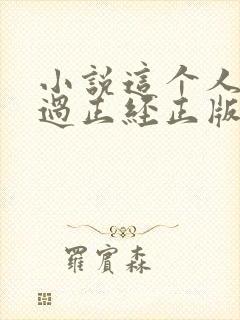 小說這个人
過正經正版
羅賓森